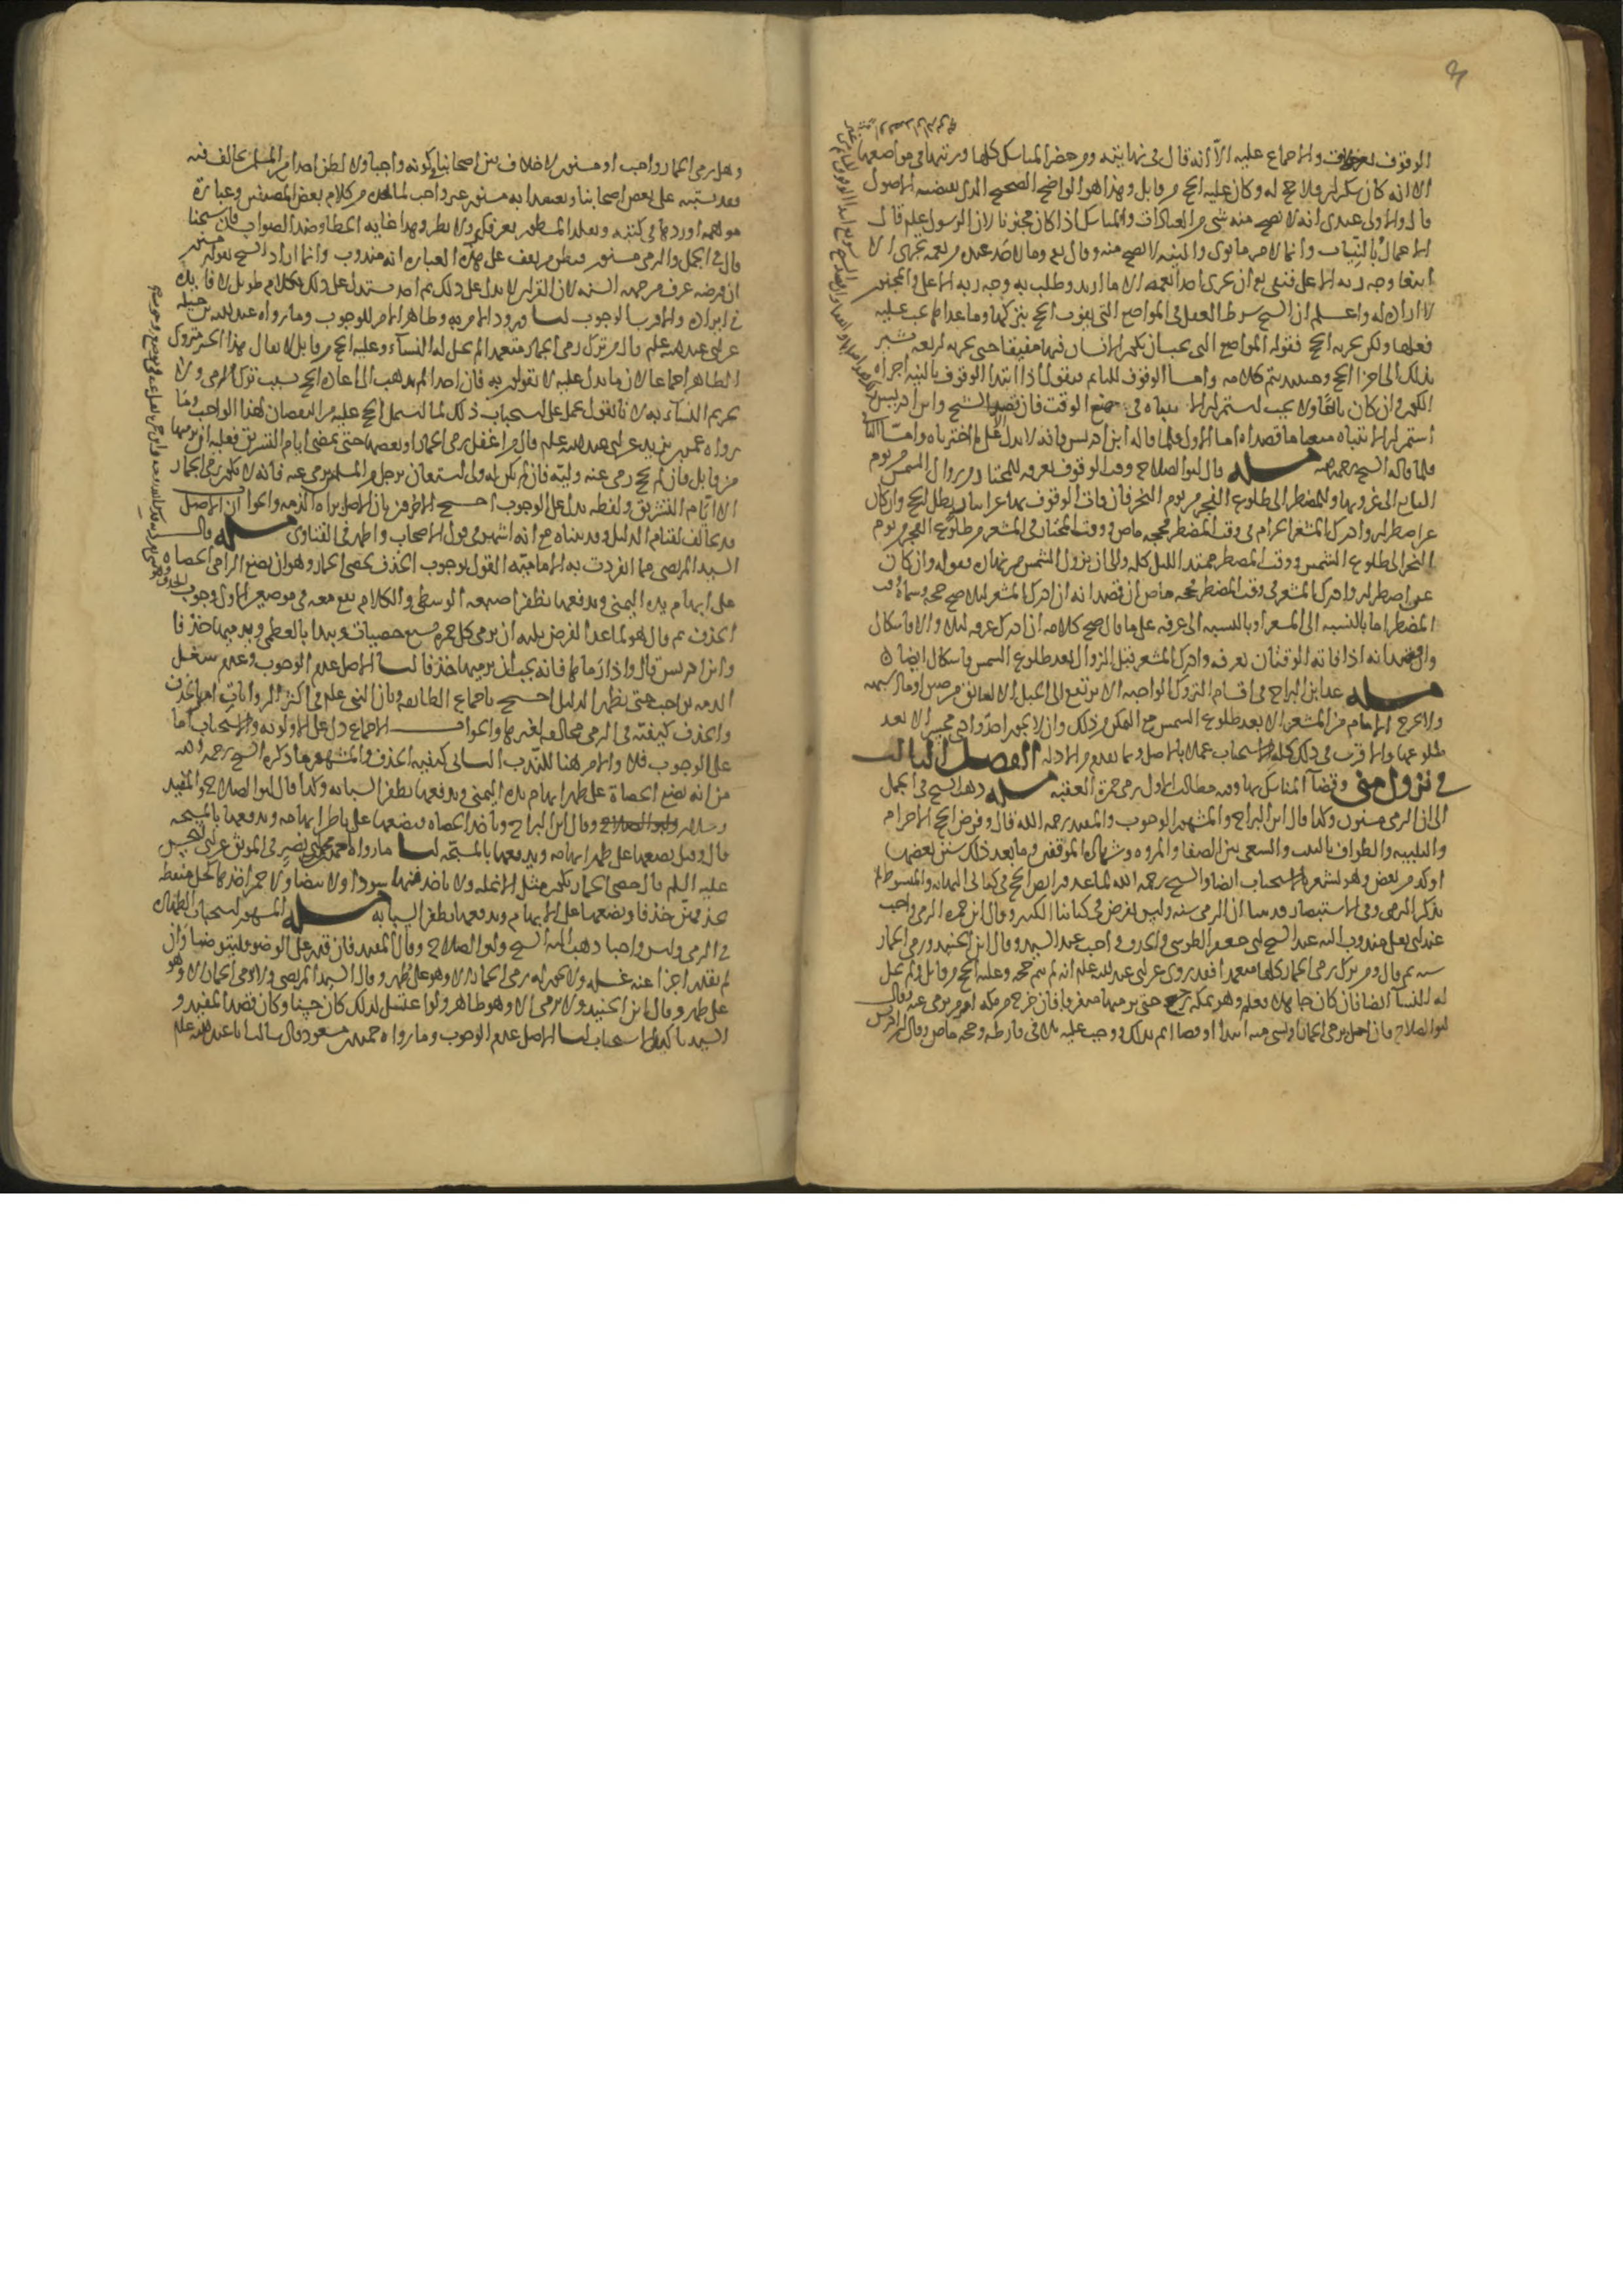 الوقوف بعرفات والاجماع عليه الا انه قال في نهايته ومن حضر المناسك كلها ورتبها في مواضعها
الا انه كان سكران فلا حج له وكان عليه الحج من قابل وهذا هو الواضح الصحيح الذي تقتضيه الاصول
قال والاولى عندي انه لا يصح منه شي من العبادات والمناسك اذا كان مجنونا لان الرسول علم قال
الاعمال بالنيات وانما لامرء ما نوى والنية لا تصح منه وقال تعالى وما لاحد عنده من نعمة تجزى الا
ابتغا وجه ربه الاعلى فنفى تع ان يجزى احد بعمله الا ما اريد وطلب به وجه ربه الاعلى والمجنون
لا ارادة له واعلم ان الشيخ شرط العقل في المواضع التي يفوت الحج بتركها وما عداها يجب عليه
فعلها ولكن يجزيه الحج فقوله المواضع التي يجب ان يكون الانسان فيها مفيقا حتى يجزيه اربعة يشير
بذلك الى اجزا الحج وحينئذ يتم كلامه واما الوقوف للنايم فنقول اذا ابتدا الوقوف بالنية اجزاه
الكون وان كان نائما ولا يجب استمرار الانتباه في جميع الوقت فان قصد الشيخ وابن ادريس
استمرار الانتباه منعنا ما قصداه اما الاول فلما قاله ابن ادريس فانه لا يدل على ما اخترناه واما الثاني
فلما قاله الشيخ رحمه الله مسله قال ابو الصلاح وقت الوقوف بعرفة للمختار من زوال الشمس من يوم
التاسع الى غروبها وللمضطر الى طلوع الفجر من يوم النحر فان فات الوقوف بها عن ايثار بطل الحج وان كان
عن اضطرار وادرك المشعر الحرام في وقت المضطر فحجه ماض ووقت المختار في المشعر من طلوع الفجر من يوم
النحر الى طلوع الشمس ووقت المضطر ممتد الليل كله والى ان تزول الشمس من نهاره فقوله وان كان
عن اضطرار وادرك المشعر في وقت المضطر فحجه ماض ان قصد انه ان ادرك المشعر ليلا صح حجه وسماه وقت
المضطر اما بالنسبة الى المشعر او بالنسبة الى عرفه على ما قال صح كلامه ان ادرك عرفه ليلا والا فاشكال
وان قصد انه اذا فاته الوقتان بعرفه وادرك المشعر قبل الزوال بعد طلوع الشمس فاشكال ايضا
مسله عد ابن البراج في اقسام التروك الواجبه الا يرتفع الى الجبل الا لعائق من ضيق او ما اشبهه
ولا يخرج الامام من المشعر الا بعد طلوع الشمس مع التمكن من ذلك وان لا يجوز احد وادي محسر الا بعد
طلوعها والاقرب في ذلك كله الاستحباب عملا بالاصل وبما تقدم من الادلة الفصل الثالث
في نزول منى وقضاء المناسك بها وفيه مطالب الاول رمي جمرة العقبه مسله ذهب الشيخ في الجمل
الى ان الرمي مسنون وكذا قال ابن البراج والمشهور الوجوب والمفيد رحمه الله قال وفرض الحج الاحرام
والتلبيه والطواف بالبيت والسعي بين الصفا والمروه وشهادة الموقفين وما بعد ذلك سنن بعضها
اوكد من بعض وهو يشعر بالاستحباب ايضا والشيخ رحمه الله لما عد فرايض الحج في كتابي النهاية والمبسوط لم
يذكر الرمي وفي الاستبصار قد بينا ان الرمي سنه وليس بفرض في كتابنا الكبير وقال ابن حمزه الرمي واجب
عند ابي يعلى مندوب اليه عند الشيخ ابي جعفر الطوسي وقال ابن الجنيد ورمي الجمار
سنه ثم قال ومن ترك رمي الجمار كلها متعمدا فقد روي عن ابي عبد الله علم انه لم يتم حجه وعليه الحج من قابل ولم تحل
له النسا ايضا فان كان جاهلا فعلم وهو بمكه رجع حتى يرميها متفرقا فان خرج من مكه امر من يرمي عنه وقال
ابو الصلاح فان اخل برمي الجمار او بشي منه ابتدا او قضا اثم بذلك ووجب عليه تلافي فارطه وحجه ماض وقال ابن ادريس
وهل رمي الجمار واجب او مسنون لا خلاف بين اصحابنا في كونه واجبا ولا اظن احدا من المسلمين يخالف فيه
وقد يشتبه على بعض اصحابنا ويعتقد انه مسنون غير واجب لما يجده من كلام بعض المصنفين وعبارة
موهمه اوردها في كتبه ويقلد المسطور بغير فكر ولا نظر وهذا غايه الخطا وضد الصواب فان شيخنا
قال في الجمل والرمي مسنون فيظن من يقف على هذه العبارة انه مندوب وانما اراد الشيخ بقوله مسنون
ان فرضه عرف من جهه السنه لان القران لا يدل على ذلك ثم اخذ يستدل على ذلك بكلام طويل لا فايده
في ايراده والاقرب الوجوب لنا ورود الامر به وظاهر الامر للوجوب وما رواه عبد الله بن جبله
عن ابي عبد الله علم قال من ترك رمي الجمار متعمدا لم تحل له النساء وعليه الحج من قابل لا يقال هذا الخبر متروك
الظاهر اجماعا لان ما يدل عليه لا تقولون به فان احدا لم يذهب الى اعادة الحج بسبب ترك الرمي ولا
تحريم النساء به لانا نقول نحمل على استحباب ذلك لما اشتمل الحج عليه من النقصان لهذا الواجب وما
رواه عمر بن يزيد عن ابي عبد الله علم قال من اغفل رمي الجمار او بعضها حتى تمضي ايام التشريق فعليه ان يرميها
من قابل فان لم يحج رمى عنه وليه فان لم يكن له ولي استعان برجل من المسلمين يرمي عنه فانه لا يكون رمي الجمار
الا ايام التشريق ولفظه على يدل على الوجوب احتج الاخرون بان الاصل براءة الذمه والجواب ان الاصل
قد يخالف لقيام الدليل وقد بيناه مع انه اشهر في قول الاصحاب واظهر في الفتاوى مسله قال
السيد المرتضى مما انفردت به الاماميه القول بوجوب الخذف بحصى الجمار وهو ان يضع الرامي الحصاه
على ابهام يده اليمنى ويدفعها بظفر اصبعه الوسطى والكلام يقع معه في موضعين الاول وجوب
الخذف ثم قال هو لما عد الفرض يليه ان يرمي كل جمره سبع حصيات ويبدا بالعظمى ويرميها خذفا
وابن ادريس قال واذا رماها فانه يجب ان يرميها خذفا لنا الاصل عدم الوجوب وعدم شغل
الذمه بواجب حتى يظهر الدليل احتج باجماع الطايفه وبان النبي علم في اكثر الروايات امر بالخذف
والخذف كيفيته في الرمي مخالفه لغيرها والجواب الاجماع دل على الاولويه والاستحباب اما
على الوجوب فلا والامر هنا للندب الثاني كيفيه الخذف والمشهور ما ذكره الشيخ رحمه الله
من انه يضع الحصاة على ظهر ابهام يده اليمنى ويدفعها بظفر السبابه وكذا قال ابو الصلاح والمفيد
وسلار وقال ابن البراج ويأخذ الحصاه فيضعها على باطن ابهامه ويدفعها بالمسبحه
قال وقيل يضعها على ظهر ابهامه ويدفعها بالمسبحه لنا ما رواه احمد بن محمد بن ابي نصر في الموثق عن ابي الحسن
عليه السلم قال حصى الجمار تكون مثل الانمله ولا تاخذها سودا ولا بيضا ولا حمرا خذها كحليه منقطه
تخذفهن خذفا وتضعها على الابهام وتدفعها بظفر السبابه مسله المشهور استحباب الطهاره
في الرمي وليس واجبا ذهب اليه الشيخ وابو الصلاح وقال المفيد فان قدر على الوضو فليتوضا وان
لم يقدر اجزا عنه غسله ولا يجوز له رمي الجمار الا وهو على طهر وقال السيد المرتضى ولا ترمي الجمار الا وهو
على طهر وقال ابن الجنيد ولا يرمي الا وهو طاهر ولو اغتسل لذلك كان حسنا وكان قصد المفيد و
السيد تاكيد الاستحباب لنا الاصل عدم الوجوب وما رواه حميد بن مسعود قال سالت ابا عبد الله علم